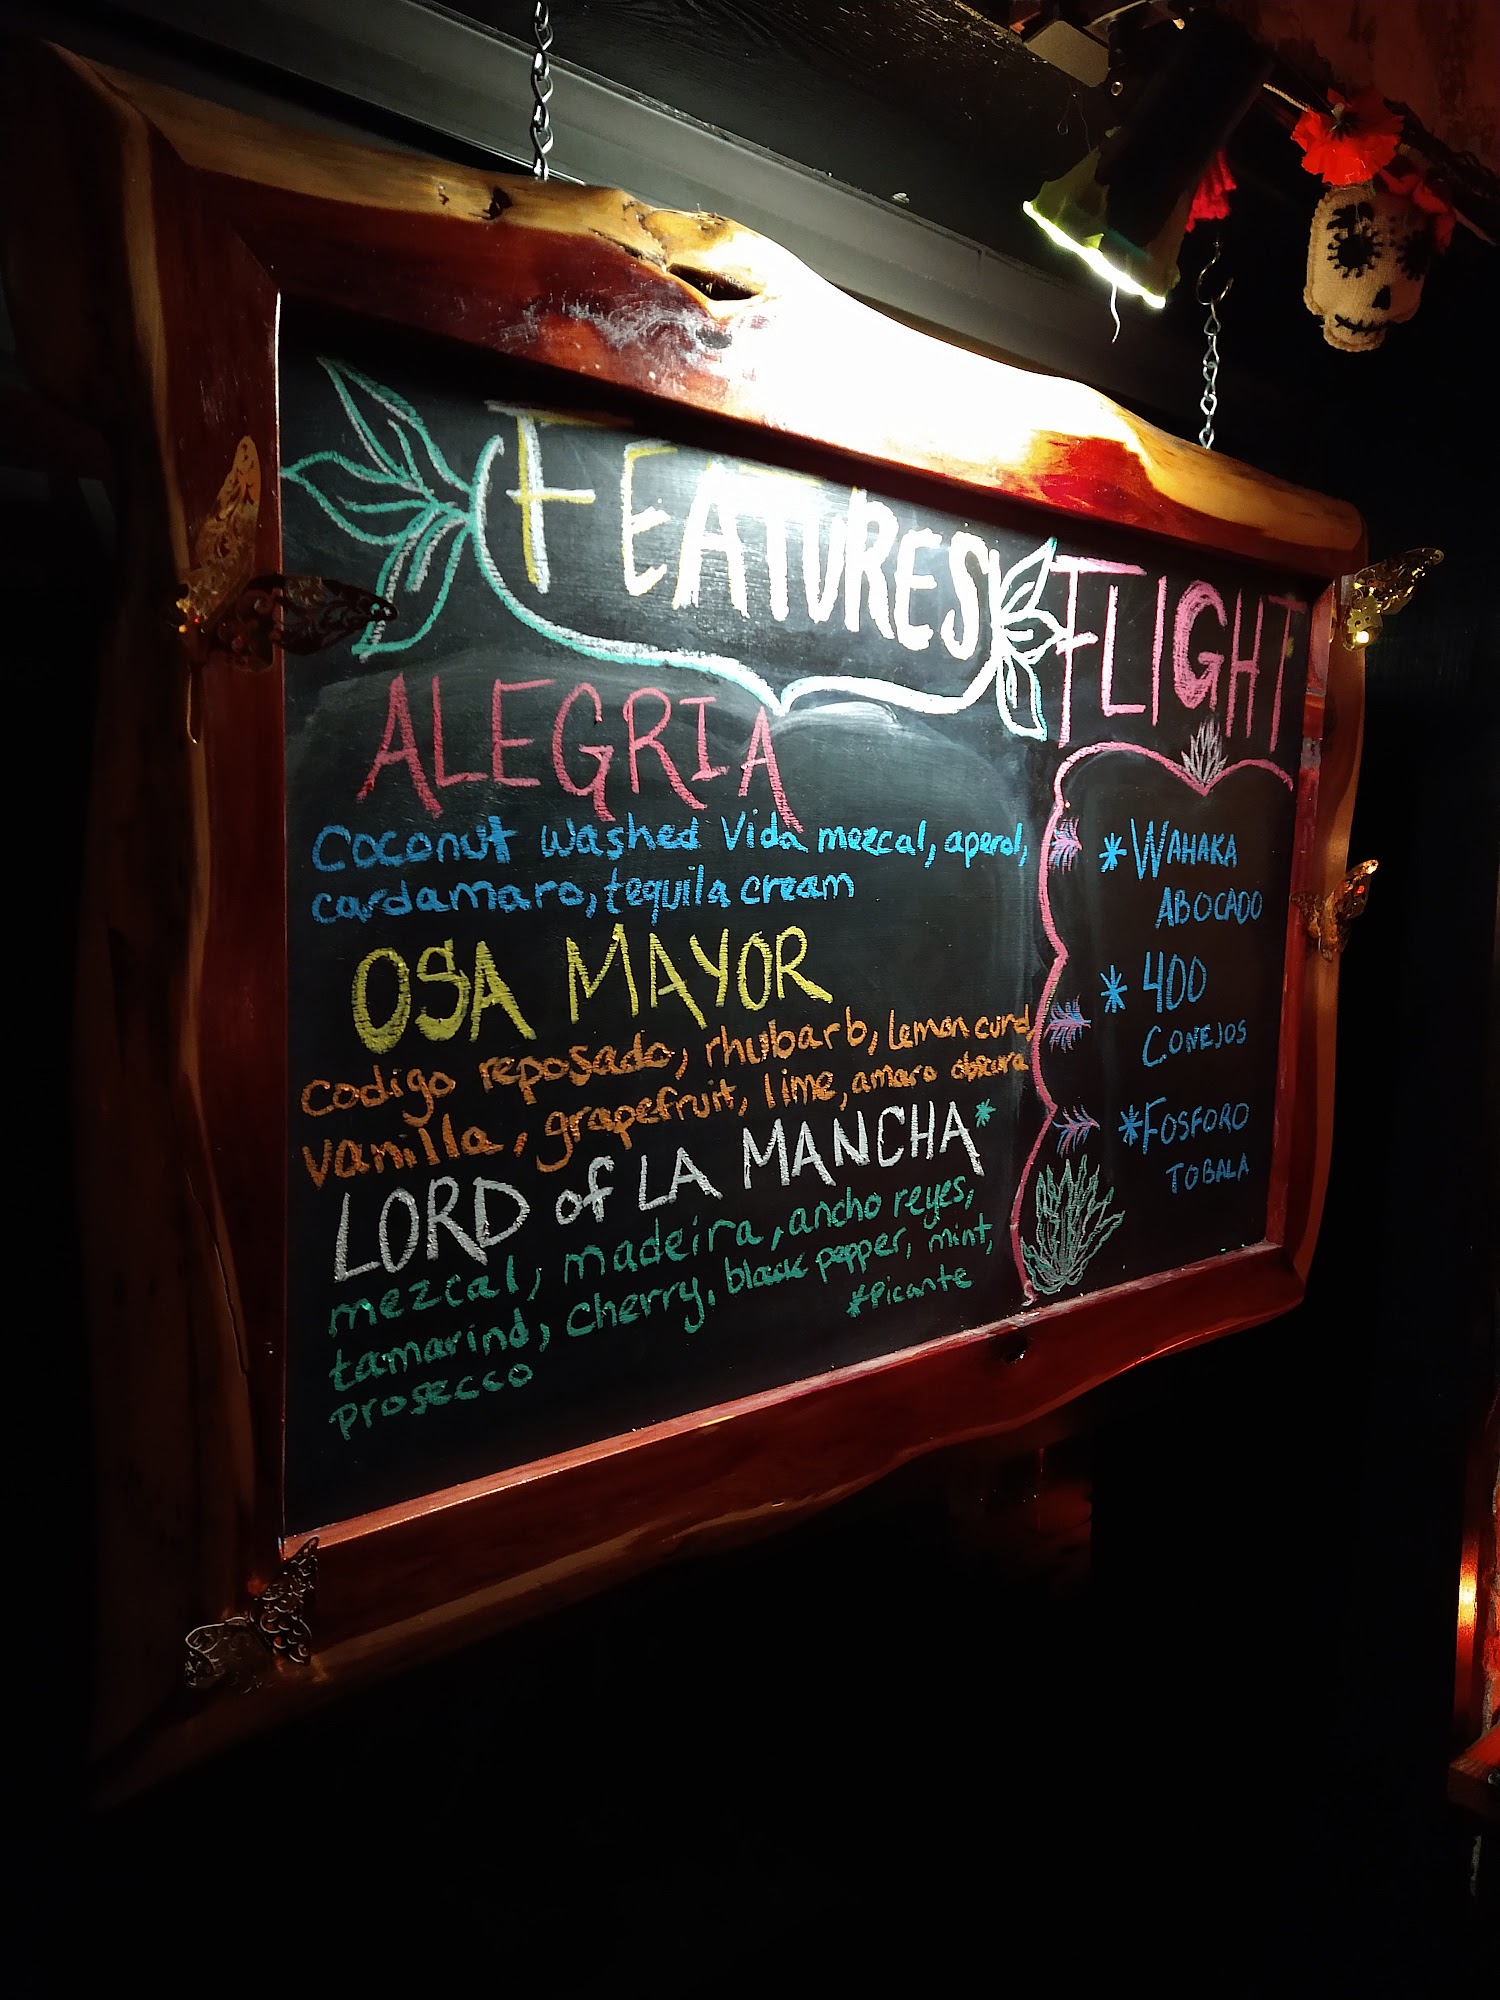 FEATURES
ALEGRIA
Coconut washed Vida mezcal, aperol,
cardamaro, tequila cream
OSA MAYOR
codigo reposado, rhubarb, lemon curd,
vanilla, grapefruit, lime, amaro obscura
LORD of LA MANCHA*
mezcal, madeira, ancho reyes,
tamarind, cherry, black pepper, mint,
prosecco
*Picante
FLIGHT
*WAHAKA
ABOCADO
*400
CONEJOS
*FOSFORO
TOBALA